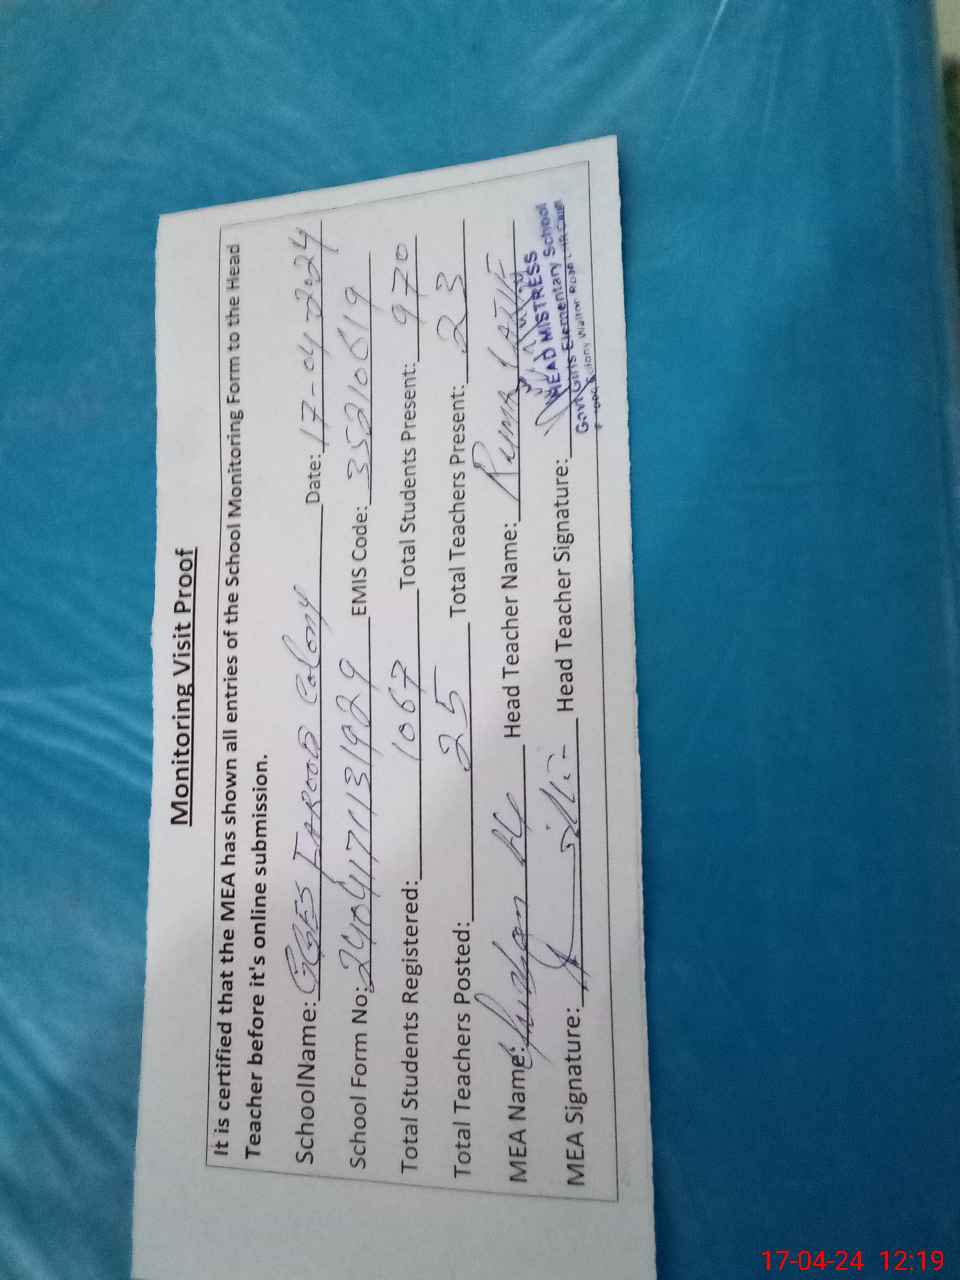 Monitoring Visit Proof
It is certified that the MEA has shown all entries of the School Monitoring Form to the Head
Teacher before it's online submission.
SchoolName: GGES FAROOQ Colony Date: 17-04-2024
School Form No: 2404171131929 EMIS Code: 35210619
Total Students Registered: 1067 Total Students Present: 970
Total Teachers Posted: 25 Total Teachers Present: 23
MEA Name: Head Teacher Name:
MEA Signature: Head Teacher Signature:
HEAD MISTRESS
Govt Girls Elementary School
Colony Walton Road
17-04-24 12:19